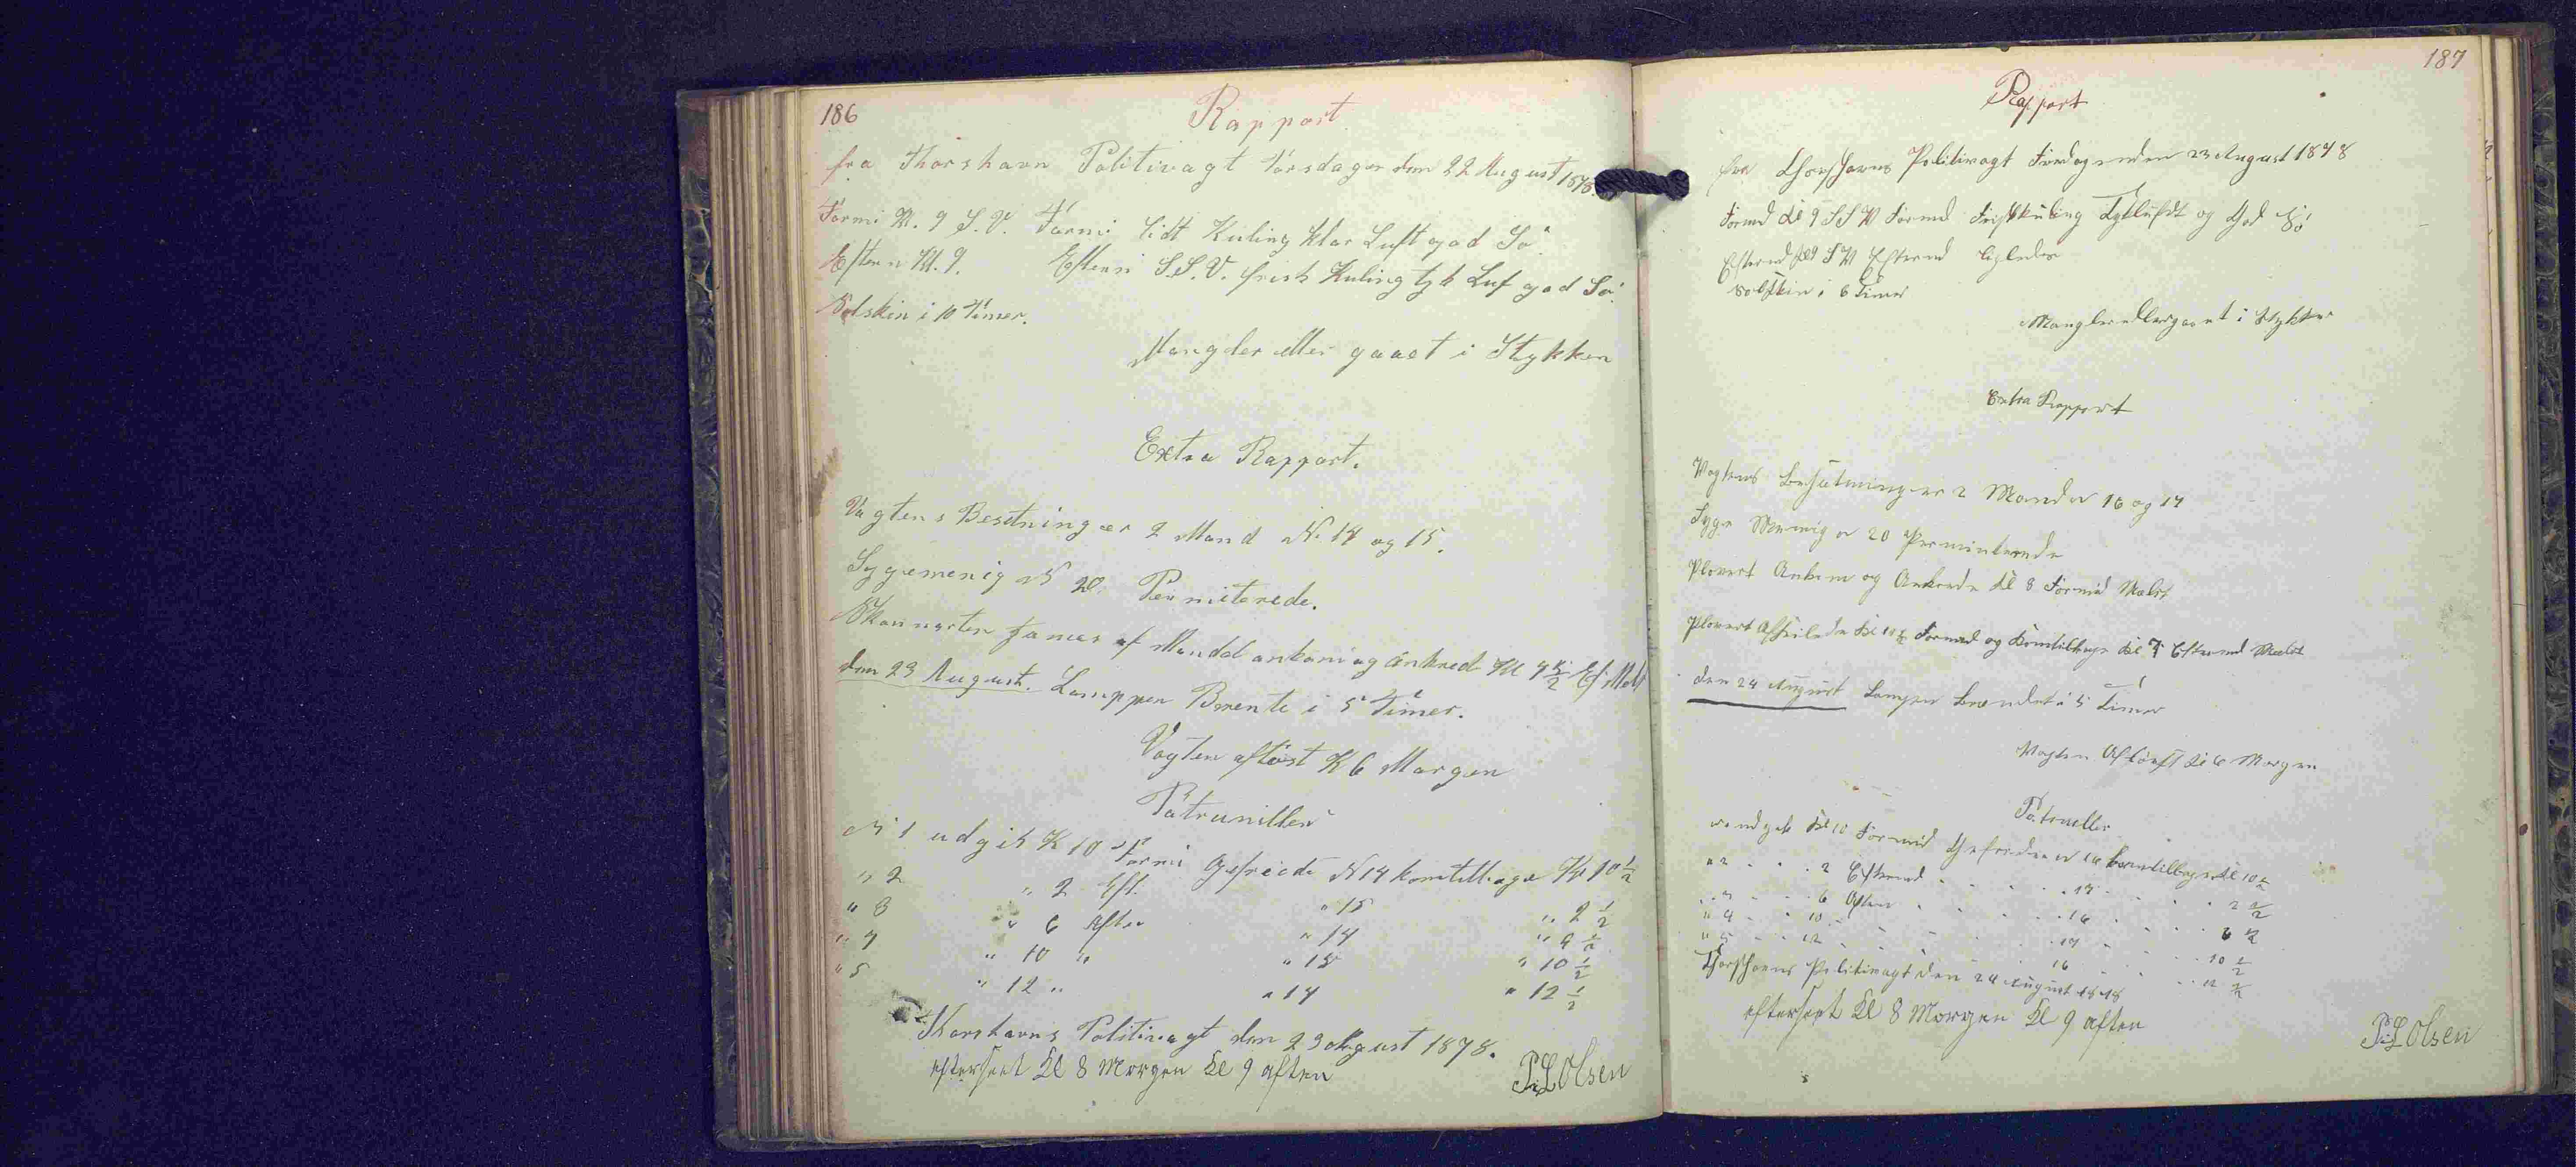 186
Rapport
fra Thorshavn Politivagt Torsdagen den 22 August 1878.
Formi Kl. 9 S.V. Formi lidt Kuling klar Luft god Sö.
Eftermi Kl. 9. Eftermi S.S.V. frisk Kuling tyk Luf god Sö.
Solskin i 10 Timer.
Mangler eller gaaet i Stykken
Extra Rapport.
Vagtens Besetning er 2 Mand No 14 og 15.
Sygemenig No 20. Permiterede.
Skonnerten James af Mandal ankom og ankred Kl 7 1/2 Ef. Meldt
den 23 August. Lamppen Brente i 5 Timer.
Vagten aflöst K 6 Morgen
Patrouillen
No 1 udgik K 10 Formi Gefreide No 14 kom tilbage Kl 10 1/2
" 2 " 2 Eft. " 15 " 2 1/2
" 3 " 6 Aften " 14 " 6 1/2
" 4 " 10 " " 15 " 10 1/2
" 5 " 12 " " 14 " 12 1/2
Thorshavns Politivagt den 23 August 1878.
efterseet Kl 8 Morgen Kl 9 aften
P. L Olsen
187
Rapport
fra Thorshavns Politivagt Fredagen den 23 August 1878
Formd Kl 9 SSV Formd Friskkuling Tykluft og God Sö
Eftermd Kl 9 SV Eftermd ligeledes
Solskin i 6 Timer
Mangler eller gaaet i Stykker
Extra Rapport
Vagtens besætning er 2 Mand No 16 og 17
Syge Menig No 20 Permiterede
Plovert Ankom og Ankrede Kl 8 Formid Meldt
Plovert Afseilede Kl 10 1/2 Formd og kom tilbage Kl 7 Eftermd Meldt
den 24 August Lampen brændet i 5 Timer
Vagten Aflöst Kl 6 Morgen
Patrueller
No 1 udgik Kl 10 Formid Gefreiden No 16 kom tilbage Kl 10 1/2
" 2 - - 2 Eftermd - - 17 - - 2 1/2
" 3 - - 6 Aften - - 16 - - 6 1/2
" 4 - - 10 - - 17 - - 10 1/2
" 5 - - 12 - - 16 - - 12 1/2
Thorshavns Politivagt den 24 August 1878
efterseet Kl 8 Morgen Kl 9 aften
P. L Olsen